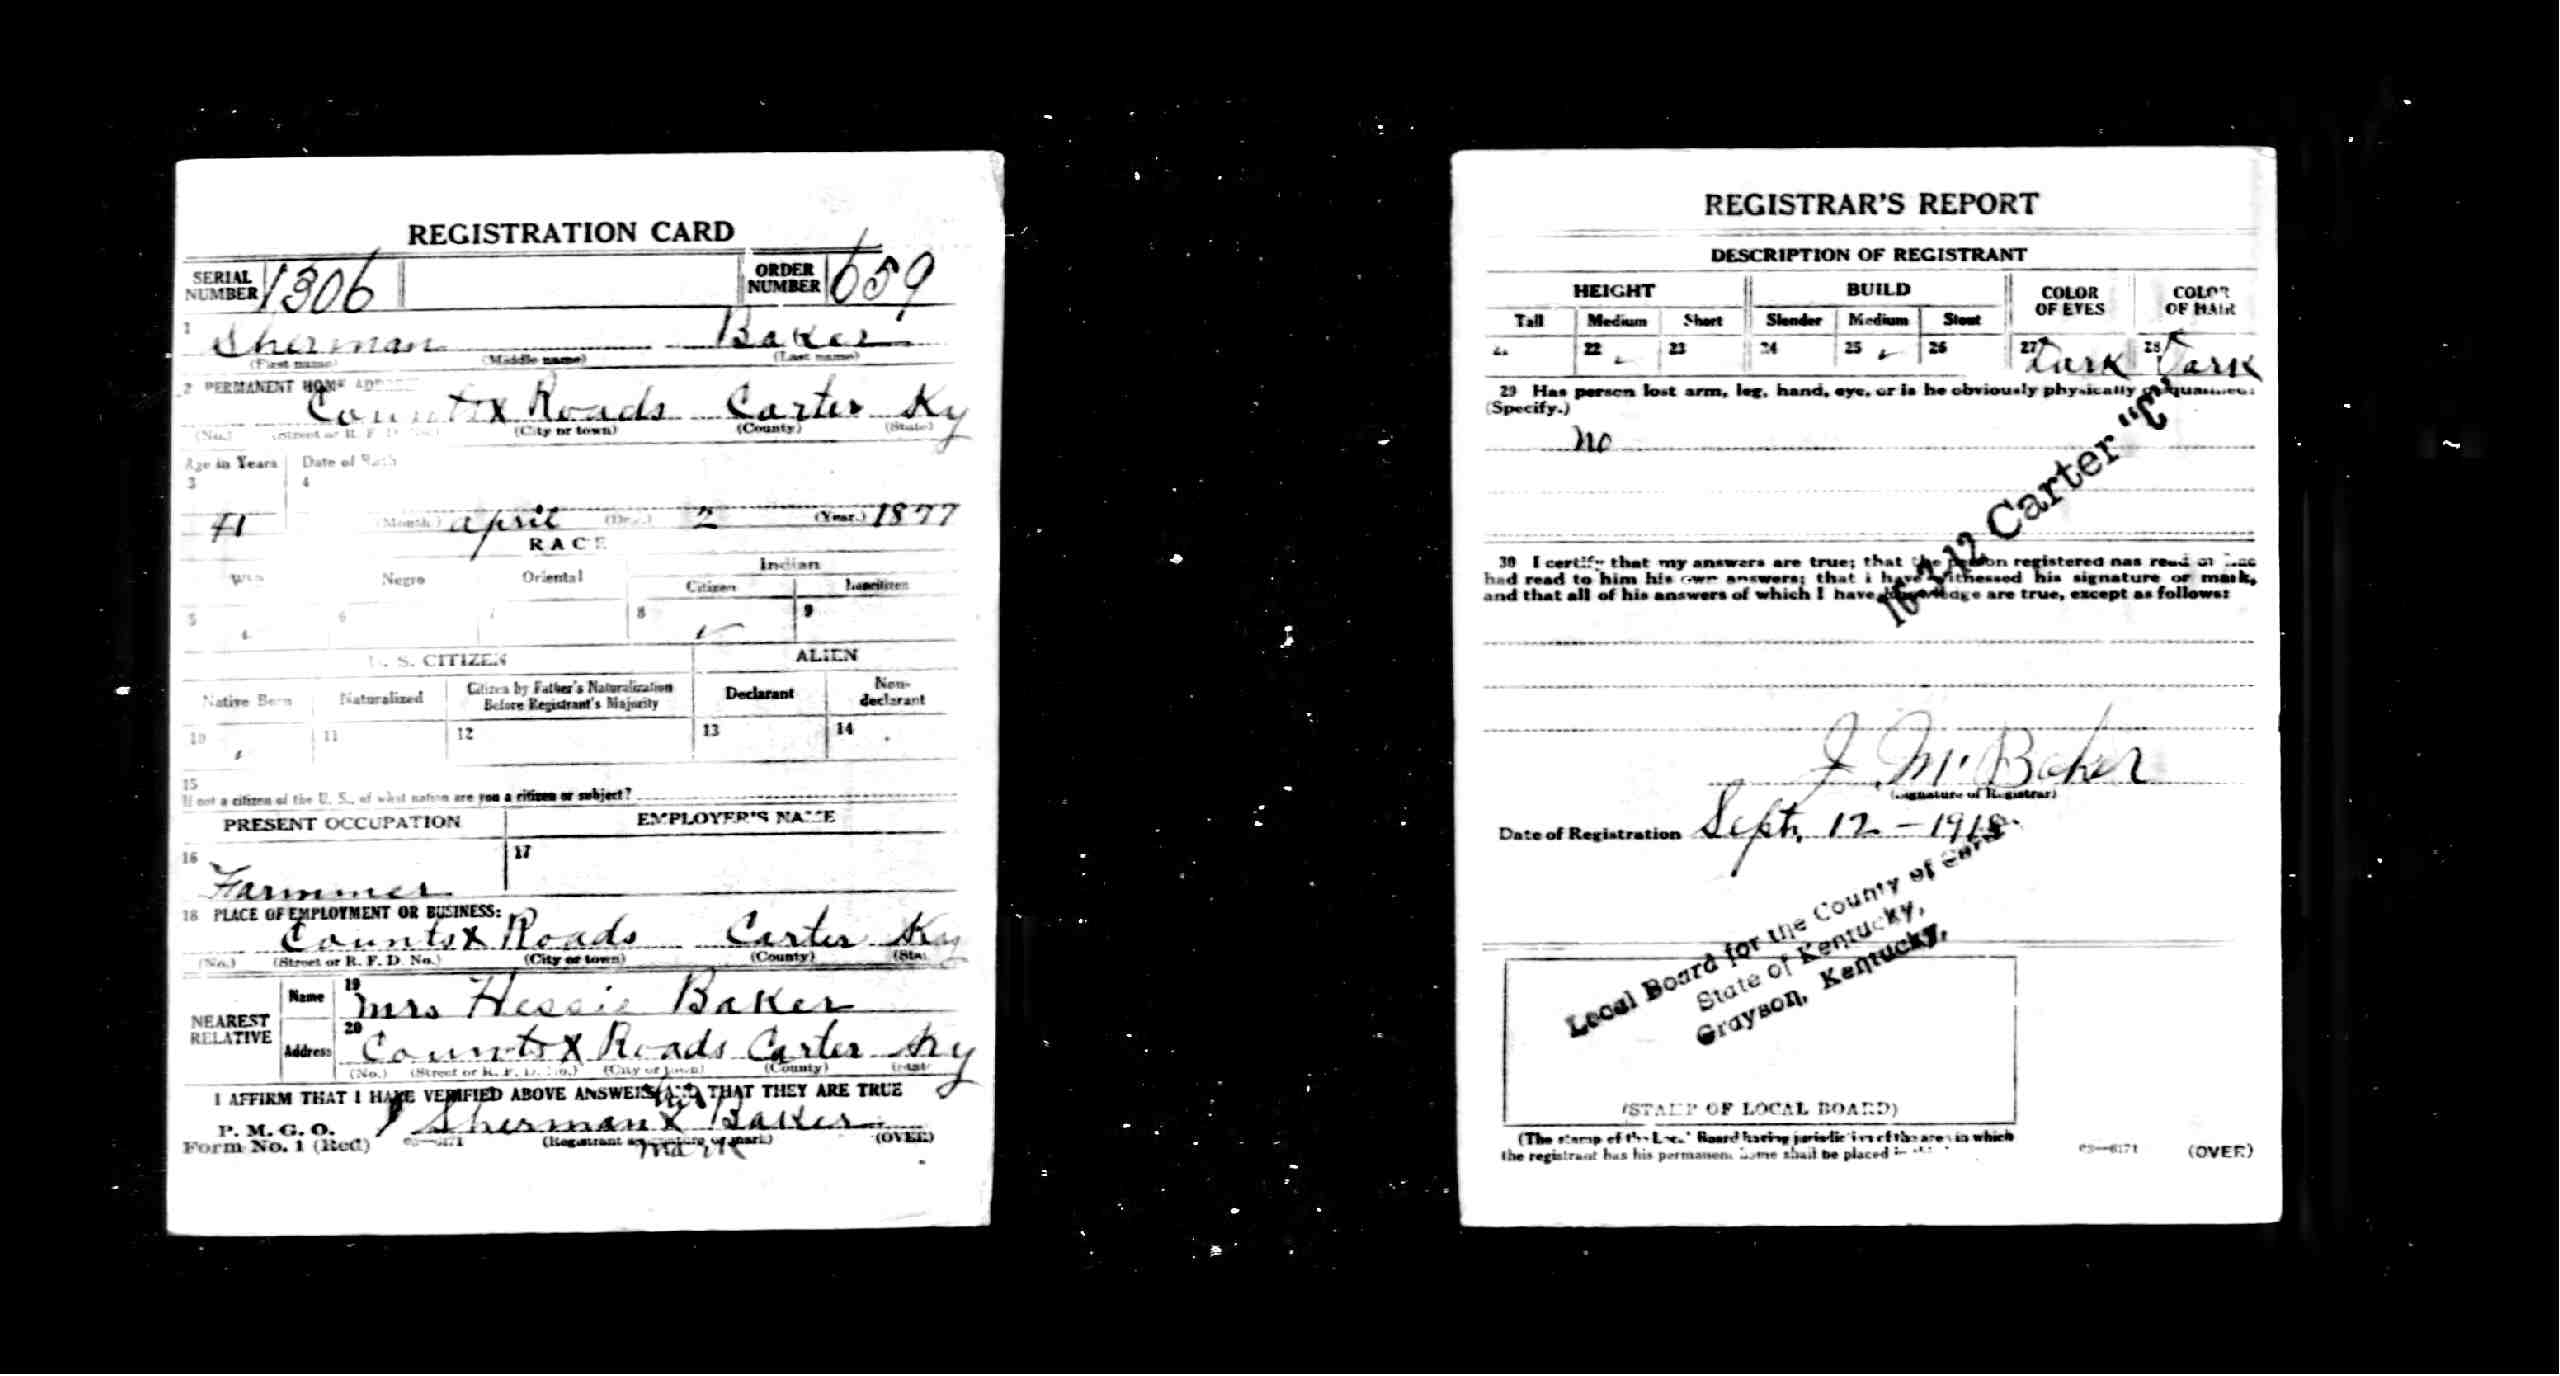 REGISTRATION CARD
SERIAL NUMBER 1306 ORDER NUMBER 659
1 Sherman Baker
(First name) (Middle name) (Last name)
2 PERMANENT HOME
Counts X Roads Carter Ky
(No.) (Street or R. F. D. No.) (City or town) (County) (State)
Age in Years Date of Birth
3 4
41 (Month.) april (Day.) 2 (Year.) 1877
RACE
Negro Oriental Indian
Citizen Noncitizen
5 6 7 8 ✓ 9
U. S. CITIZEN ALIEN
Native Born Naturalized Citizen by Father's Naturalization Before Registrant's Majority Declarant Non-declarant
10 11 12 13 14
15
If not a citizen of the U. S., of what nation are you a citizen or subject?
PRESENT OCCUPATION EMPLOYER'S NAME
16 17
Farmmer
18 PLACE OF EMPLOYMENT OR BUSINESS:
Counts X Roads Carter Ky
(No.) (Street or R. F. D. No.) (City or town) (County) (State)
NEAREST RELATIVE
Name 19 Mrs Hessie Baker
Address 20 Counts X Roads Carter Ky
(No.) (Street or R. F. D. No.) (City or town) (County) (State)
I AFFIRM THAT I HAVE VERIFIED ABOVE ANSWERS AND THAT THEY ARE TRUE
his
Sherman X Baker
P. M. G. O.
Form No. 1 (Red) 03—6171 (Registrant signature or mark) (OVER)
mark
REGISTRAR'S REPORT
DESCRIPTION OF REGISTRANT
HEIGHT BUILD COLOR OF EYES COLOR OF HAIR
Tall Medium Short Slender Medium Stout
21 22 ✓ 23 24 25 ✓ 26 27 Dark 28 Dark
29 Has person lost arm, leg, hand, eye, or is he obviously physically disqualified?
(Specify.)
no
16-2-12 Carter "C"
30 I certify that my answers are true; that the person registered has read or has
had read to him his own answers; that I have witnessed his signature or mark,
and that all of his answers of which I have knowledge are true, except as follows:
J M. Baker
(Signature of Registrar)
Date of Registration Sept, 12 - 1918.
Local Board for the County of
State of Kentucky,
Grayson, Kentucky,
(STAMP OF LOCAL BOARD)
(The stamp of the Local Board having jurisdiction of the area in which
the registrant has his permanent home shall be placed in
03—6171 (OVER)